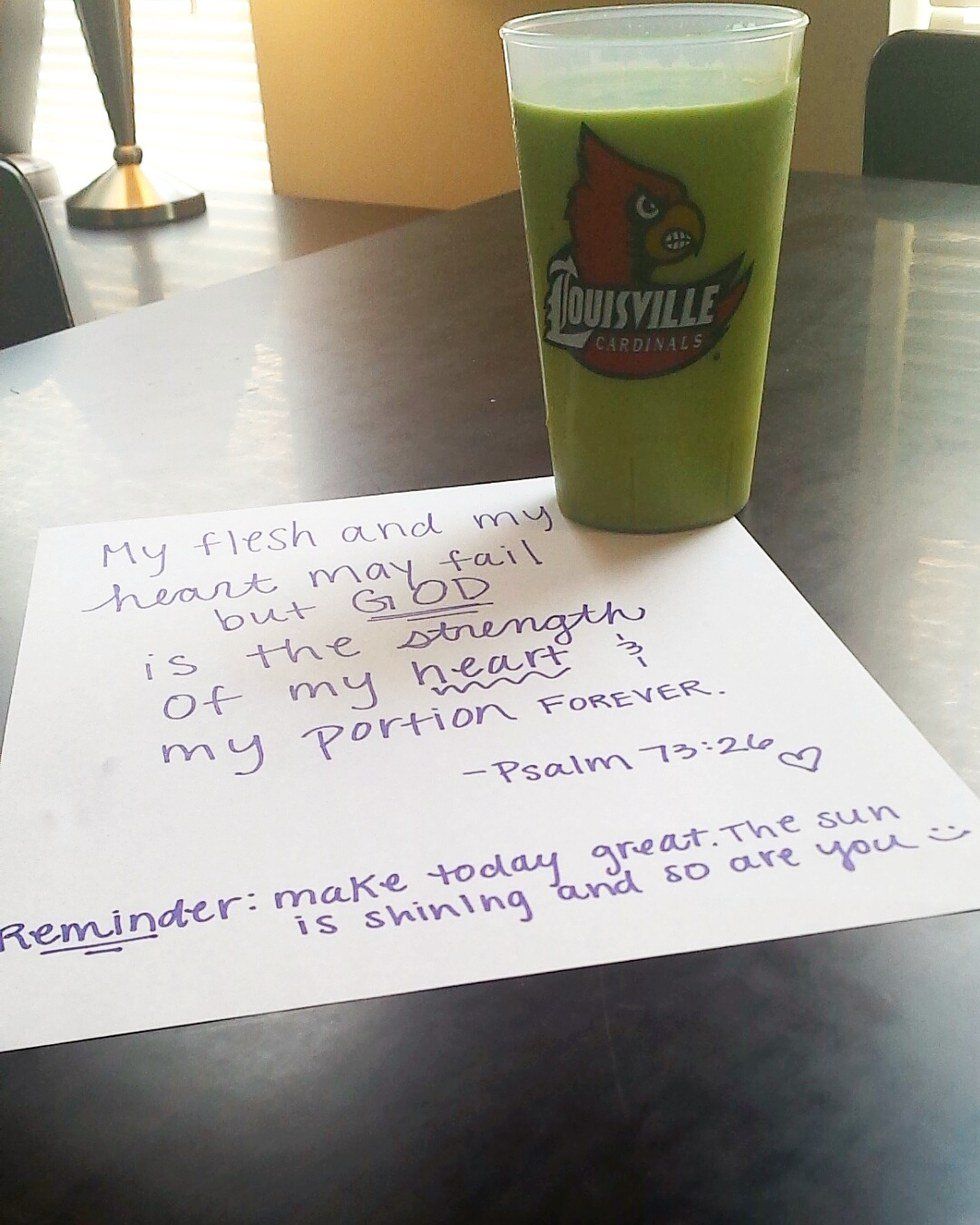 LOUISVILLE
CARDINALS
My flesh and my
heart may fail
but GOD
is the strength
of my heart &
my portion FOREVER.
-Psalm 73:26 ♡
Reminder: make today great. The sun
is shining and so are you :)